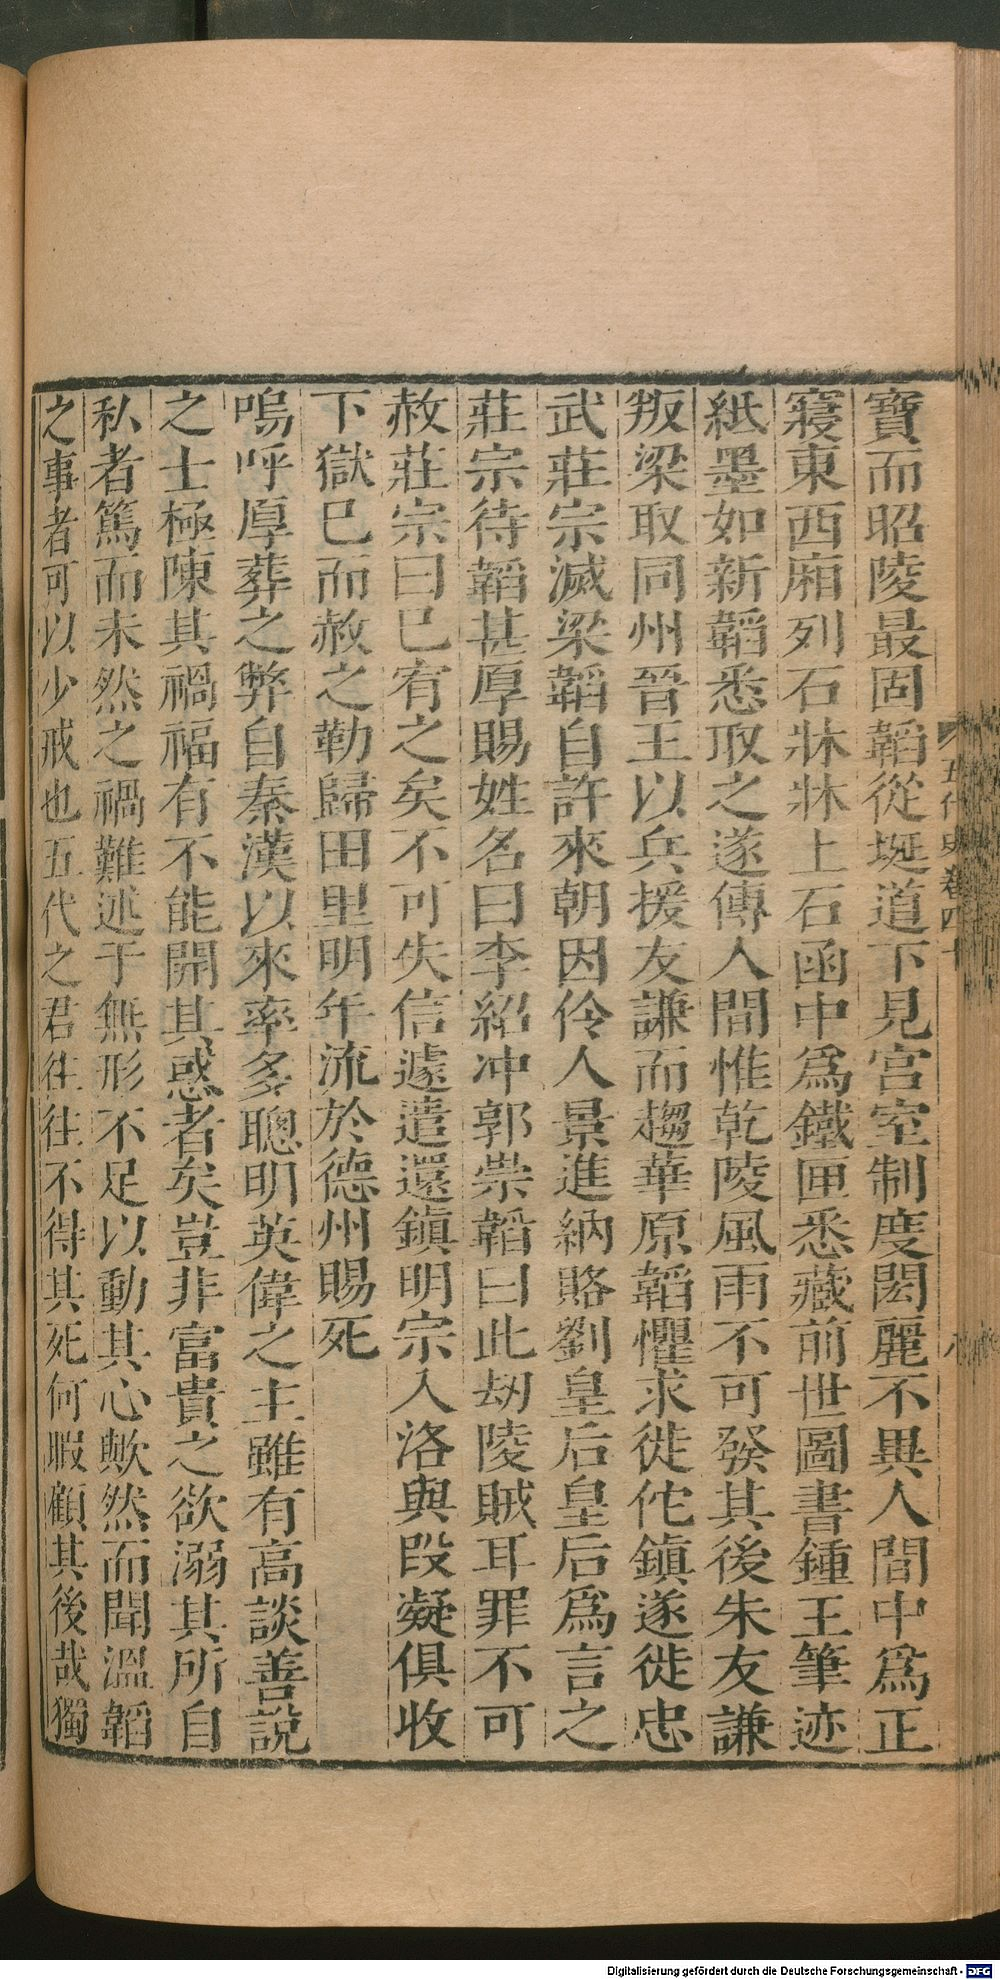 寶而昭陵最固韜從埏道下見宮室制度閎麗不異人間中爲正
寢東西廂列石牀牀上石函中爲鐵匣悉藏前世圖書鍾王筆迹
紙墨如新韜悉取之遂傳人間惟乾陵風雨不可發其後朱友謙
叛梁取同州晉王以兵援友謙而趨華原韜懼求徙佗鎮遂徙忠
武莊宗滅梁韜自許來朝因伶人景進納賂劉皇后皇后爲言之
莊宗待韜甚厚賜姓名曰李紹冲郭崇韜曰此刼陵賊耳罪不可
赦莊宗曰已宥之矣不可失信遽遣還鎮明宗入洛與段凝俱收
下獄已而赦之勒歸田里明年流於德州賜死
嗚呼厚葬之弊自秦漢以來率多聰明英偉之主雖有高談善說
之士極陳其禍福有不能開其惑者矣豈非富貴之欲溺其所自
私者篤而未然之禍難述于無形不足以動其心歟然而聞溫韜
之事者可以少戒也五代之君往往不得其死何暇顧其後哉獨
五代史卷四十
八
Digitalisierung gefördert durch die Deutsche Forschungsgemeinschaft - DFG